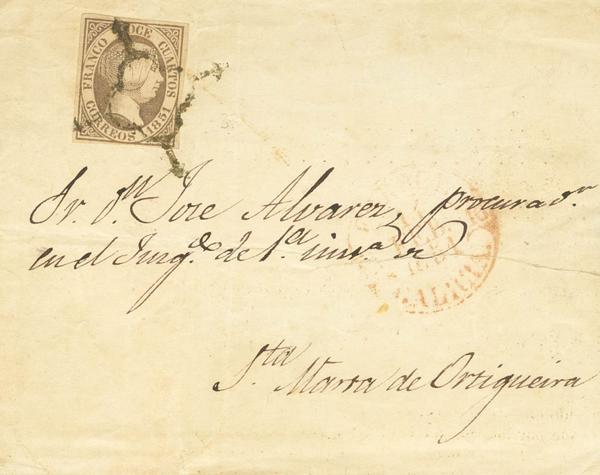 FRANCO DOCE CUARTOS
CORREOS 1851
Sr. Dn Jose Alvarez, procurador
en el Juzgdo de 1ª insª de
GALICIA
Sta Marta de Ortigueira